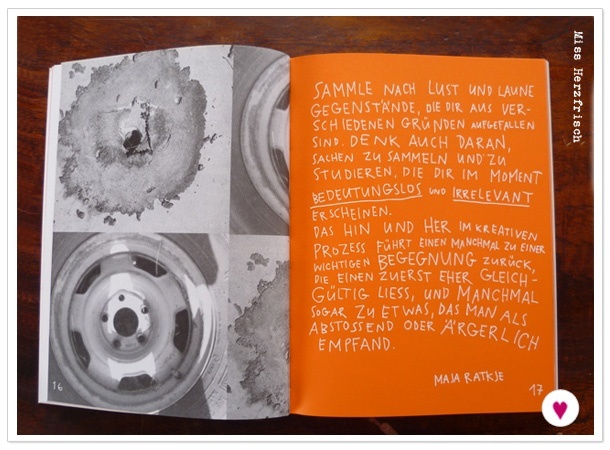 Miss Herzfrisch
SAMMLE NACH LUST UND LAUNE
GEGENSTÄNDE, DIE DIR AUS VER-
SCHIEDENEN GRÜNDEN AUFGEFALLEN
SIND. DENK AUCH DARAN,
SACHEN ZU SAMMELN UND ZU
STUDIEREN, DIE DIR IM MOMENT
BEDEUTUNGSLOS UND IRRELEVANT
ERSCHEINEN.
DAS HIN UND HER IM KREATIVEN
PROZESS FÜHRT EINEN MANCHMAL ZU EINER
WICHTIGEN BEGEGNUNG ZURÜCK,
DIE EINEN ZUERST EHER GLEICH-
GÜLTIG LIESS, UND MANCHMAL
SOGAR ZU ETWAS, DAS MAN ALS
ABSTOSSEND ODER ÄRGERLICH
EMPFAND.
MAJA RATKJE
16
17